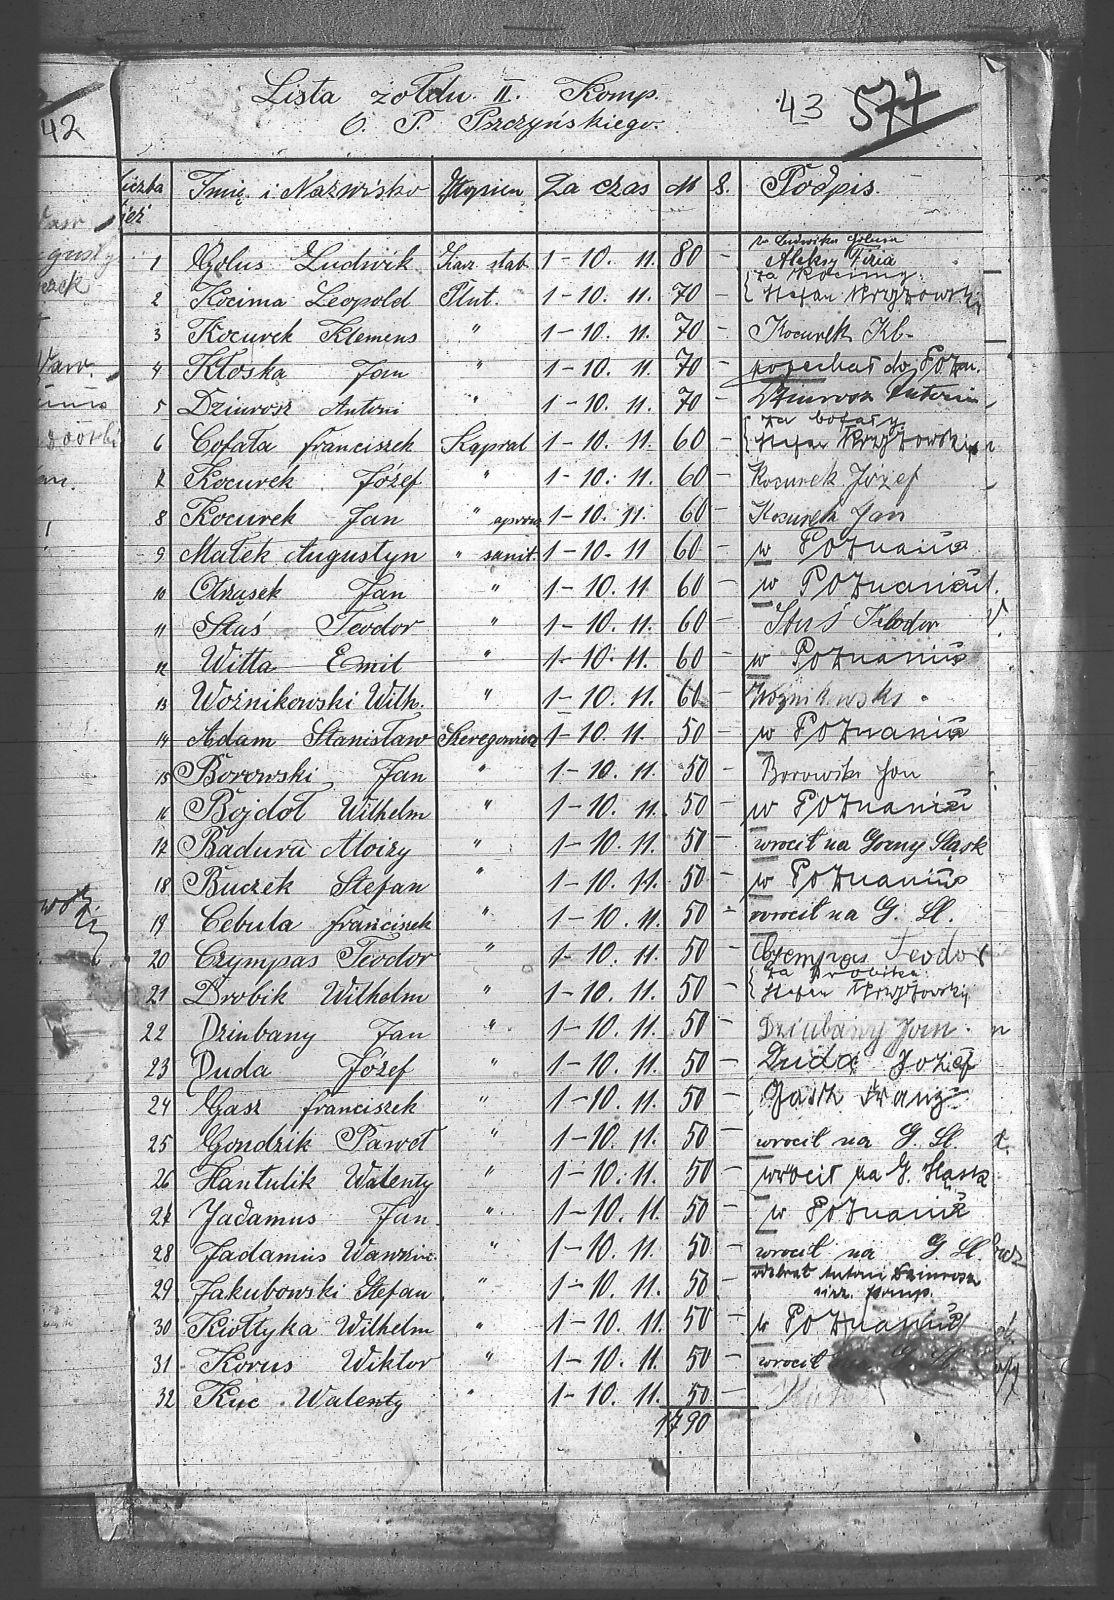 42
Lista żołdu II. Komp.
O. P. Pszczyńskiego.
43 577
Liczba bież Imię i Nazwisko Stopień Za czas M S. Podpis.
1 Golus Ludwik Kasz. stab. 1-10. 11. 80 - za Ludwika Golusa Aleksy Fizia
2 Kocima Leopold Plut. 1-10. 11. 70 - za Kocimy: Stefan Krzyżowski
3 Kocurek Klemens " 1-10. 11. 70 - Kocurek Kl-
4 Kłoska Jan " 1-10. 11. 70 - pojechał do Pozn.
5 Dziurosz Antoni " 1-10. 11. 70 - Dziurosz Antoni
6 Cofała Franciszek Kapral 1-10. 11. 60 - za Cofały Stefan Krzyżowski
7 Kocurek Józef " 1-10. 11. 60 - Kocurek Józef
8 Kocurek Jan " 1-10. 11. 60 - Kocurek Jan
9 Małek Augustyn " sanit. 1-10. 11 60 - w Poznaniu
10 Otrząsek Jan " 1-10. 11. 60 - w Poznaniu
11 Staś Teodor " 1-10. 11. 60 - Staś Teodor
12 Witta Emil " 1-10. 11. 60 - w Poznaniu
13 Woźnikowski Wilh. " 1-10. 11. 60 - Woźnikowski
14 Adam Stanisław Szeregowiec 1-10. 11. 50 - w Poznaniu
15 Borowski Jan " 1-10. 11. 50 - Borowski Jan
16 Bojdoł Wilhelm " 1-10. 11. 50 - w Poznaniu
17 Badura Aloizy " 1-10. 11. 50 - wrócił na Górny Śląsk
18 Buczek Stefan " 1-10. 11. 50 - w Poznaniu
19 Cebula Franciszek " 1-10. 11. 50 - wrócił na G. Śl.
20 Czympas Teodor " 1-10. 11. 50 - Czempas Teodor
21 Drobik Wilhelm " 1-10. 11. 50 - za Drobika: Stefan Krzyżowski
22 Dziubany Jan " 1-10. 11. 50 - Dziubany Jan
23 Duda Józef " 1-10. 11. 50 - Duda Jozef
24 Gasz Franciszek " 1-10. 11. 50 - Gasch Franz
25 Gondzik Paweł " 1-10. 11. 50 - wrócił na G. Śl.
26 Hantulik Walenty " 1-10. 11. 50 - wrócił na G. Śląsk
27 Jadamus Jan " 1-10. 11. 50 - w Poznaniu
28 Jadamus Wawrzin. " 1-10. 11. 50 - wrócił na G. Śl.
29 Jakubowski Stefan " 1-10. 11. 50 - odebrał Antoni Dziurosz sierż. komp.
30 Kiołtyka Wilhelm " 1-10. 11. 50 - w Poznaniu
31 Korus Wiktor " 1-10. 11. 50 - wrócił na G. Śl.
32 Kuc Walenty " 1-10. 11. 50 -
1790